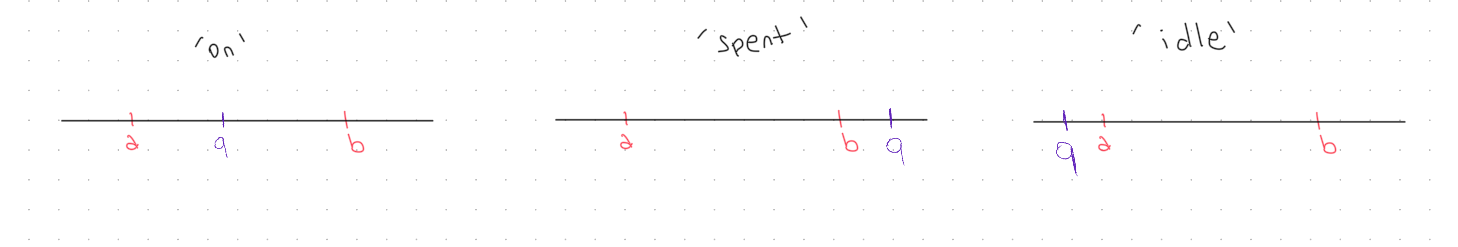 'on'
a q b
'spent'
a b q
'idle'
q a b